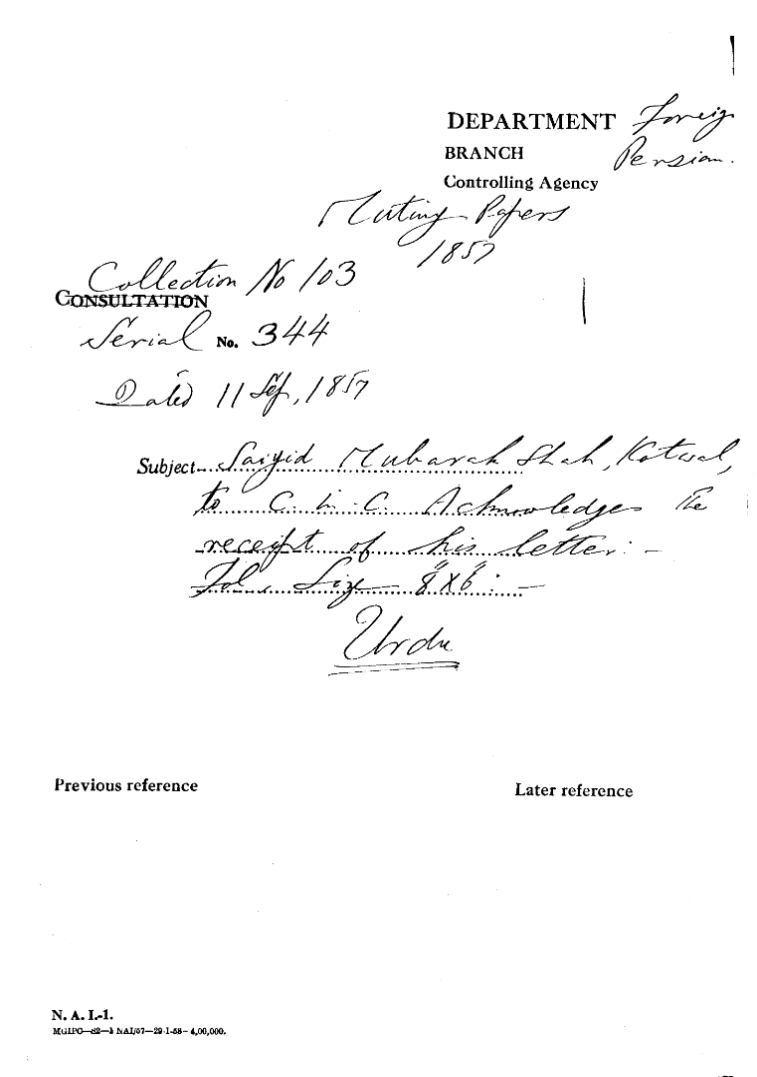 DEPARTMENT Foreig
BRANCH Persian.
Controlling Agency
Mutiny Papers
1857
Collection No 103
CONSULTATION
Serial No. 344
Dated 11 Sep, 1857
Subject Saiyid Mubarak Shah, Kotwal,
to C. in. C. Acknowledges the
receipt of his letter: -
Fol, Size 8" X 6": -
Urdu
Previous reference Later reference
N. A. I.-1.
MGIPC—S2—3 NAI/57—29-1-58—4,00,000.